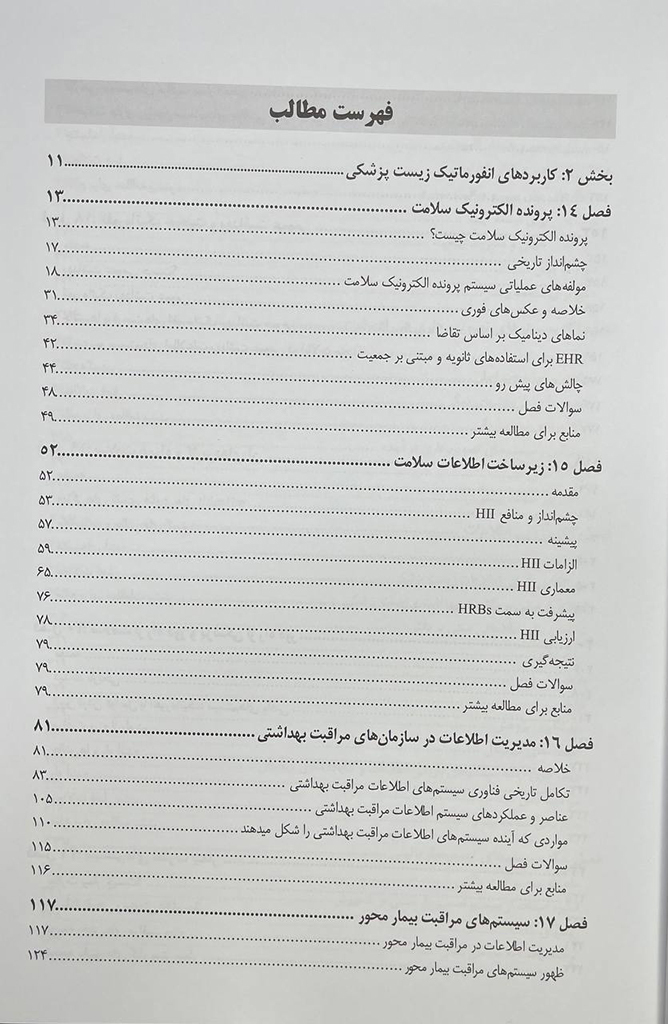 فهرست مطالب
بخش ۲: کاربردهای انفورماتیک زیست پزشکی ........ ۱۱
فصل ۱۴: پرونده الکترونیک سلامت ........ ۱۳
پرونده الکترونیک سلامت چیست؟ ........ ۱۳
چشم‌انداز تاریخی ........ ۱۷
مولفه‌های عملیاتی سیستم پرونده الکترونیک سلامت ........ ۱۸
خلاصه و عکس‌های فوری ........ ۳۱
نماهای دینامیک بر اساس تقاضا ........ ۳۴
EHR برای استفاده‌های ثانویه و مبتنی بر جمعیت ........ ۴۲
چالش‌های پیش رو ........ ۴۴
سوالات فصل ........ ۴۸
منابع برای مطالعه بیشتر ........ ۴۹
فصل ۱۵: زیرساخت اطلاعات سلامت ........ ۵۲
مقدمه ........ ۵۲
چشم‌انداز و منافع HII ........ ۵۳
پیشینه ........ ۵۷
الزامات HII ........ ۵۹
معماری HII ........ ۶۵
پیشرفت به سمت HRBs ........ ۷۶
ارزیابی HII ........ ۷۸
نتیجه‌گیری ........ ۷۹
سوالات فصل ........ ۷۹
منابع برای مطالعه بیشتر ........ ۷۹
فصل ۱۶: مدیریت اطلاعات در سازمان‌های مراقبت بهداشتی ........ ۸۱
خلاصه ........ ۸۱
تکامل تاریخی فناوری سیستم‌های اطلاعات مراقبت بهداشتی ........ ۸۳
عناصر و عملکردهای سیستم اطلاعات مراقبت بهداشتی ........ ۱۰۵
مواردی که آینده سیستم‌های اطلاعات مراقبت بهداشتی را شکل میدهند ........ ۱۱۰
سوالات فصل ........ ۱۱۵
منابع برای مطالعه بیشتر ........ ۱۱۶
فصل ۱۷: سیستم‌های مراقبت بیمار محور ........ ۱۱۷
مدیریت اطلاعات در مراقبت بیمار محور ........ ۱۱۷
ظهور سیستم‌های مراقبت بیمار محور ........ ۱۲۴